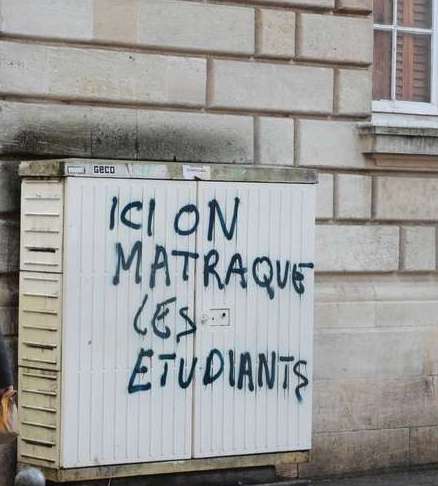 GECO
ICI ON
MATRAQUE
LES
ETUDIANTS